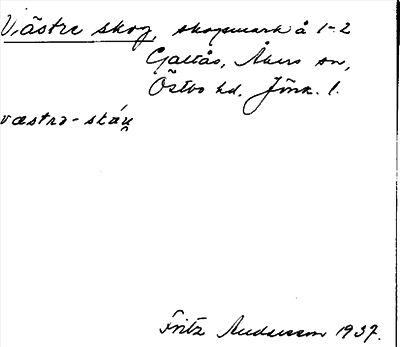 Västre skog, skogsmark å 1-2
Galtås, Åkers sn,
Östbo hd. Jönk. l.
væstrə-skáu̯
Fritz Andersson 1937.